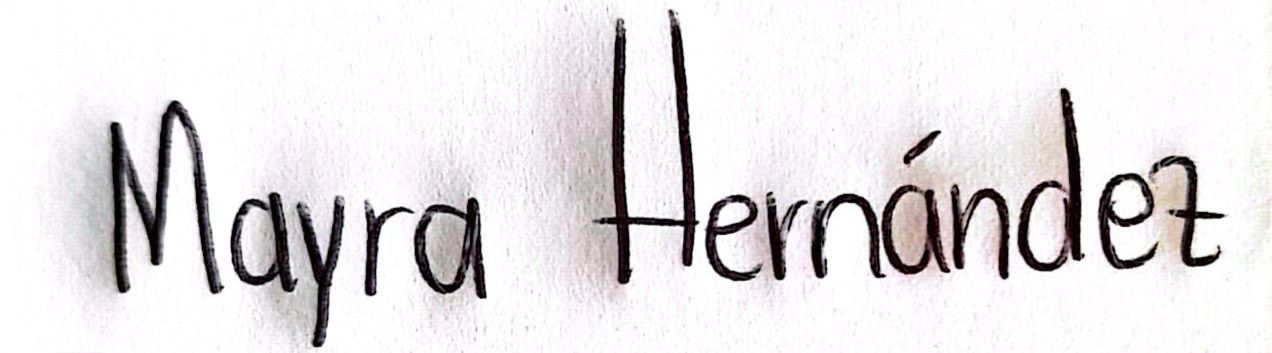 Mayra Hernández